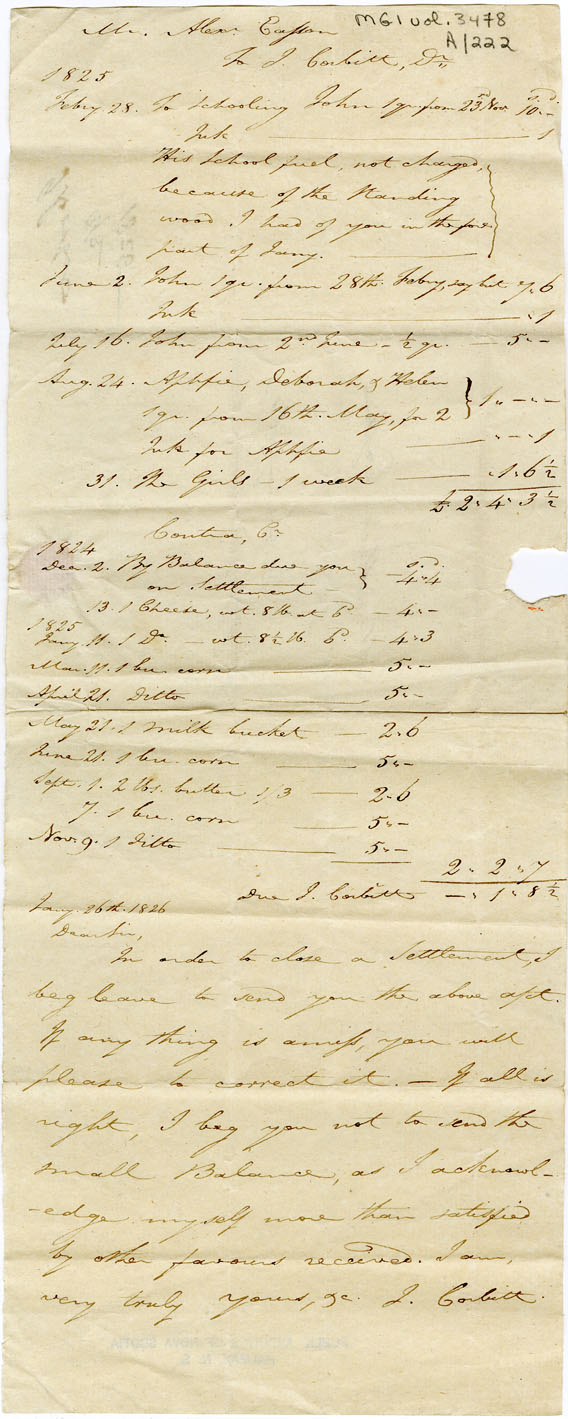 MG1 vol. 3478
A/222
Mr. Alexr. Easson
To J. Corbitt, Dr.
1825
s. d.
Febry 28. To Schooling John 1 qr. from 23rd Novr. 10 " -
Ink 1
His School fuel, not charged,
because of the Standing
wood I had of you in the fore
part of Jany.
June 2. John 1 qr. from 28th. Febry, say but 7 " 6
Ink " 1
July 16. John from 2nd June - ½ qr. - 5 " -
Aug. 24. Aphfie, Deborah, & Helen
1 qr. from 16th. May, for 2 } 1 " - " -
Ink for Aphfie " - " 1
31. The Girls - 1 week " 1 " 6 ½
£ 2 " 4 " 3 ½
Contra, Cr.
1824
s. d.
Dec. 2. By Balance due you
on Settlement - } 4 " 4
13. 1 Cheese, wt. 8 lb at 6d. - 4 " -
1825
Jany 11. 1 Do. - wt. 8½ lb. 6d. - 4 " 3
Mar. 11. 1 bu. corn 5 " -
April 21. Ditto 5 " -
May 21. 1 milk bucket - 2 " 6
June 21. 1 bu. corn 5 " -
Sept. 1. 2 lbs. butter 1/3 - 2 " 6
7. 1 bu. corn 5 " -
Nov. 9. 1 Ditto 5 " -
2 " 2 " 7
Due J. Corbitt - " 1 " 8 ½
Jany. 26th. 1826
Dear Sir,
In order to close a Settlement, I
beg leave to send you the above apt.
If any thing is amiss, you will
please to correct it. - If all is
right, I beg you not to send the
small Balance, as I acknowl-
-edge myself more than satisfied
by other favours received. I am,
very truly yours, &c. J. Corbitt.